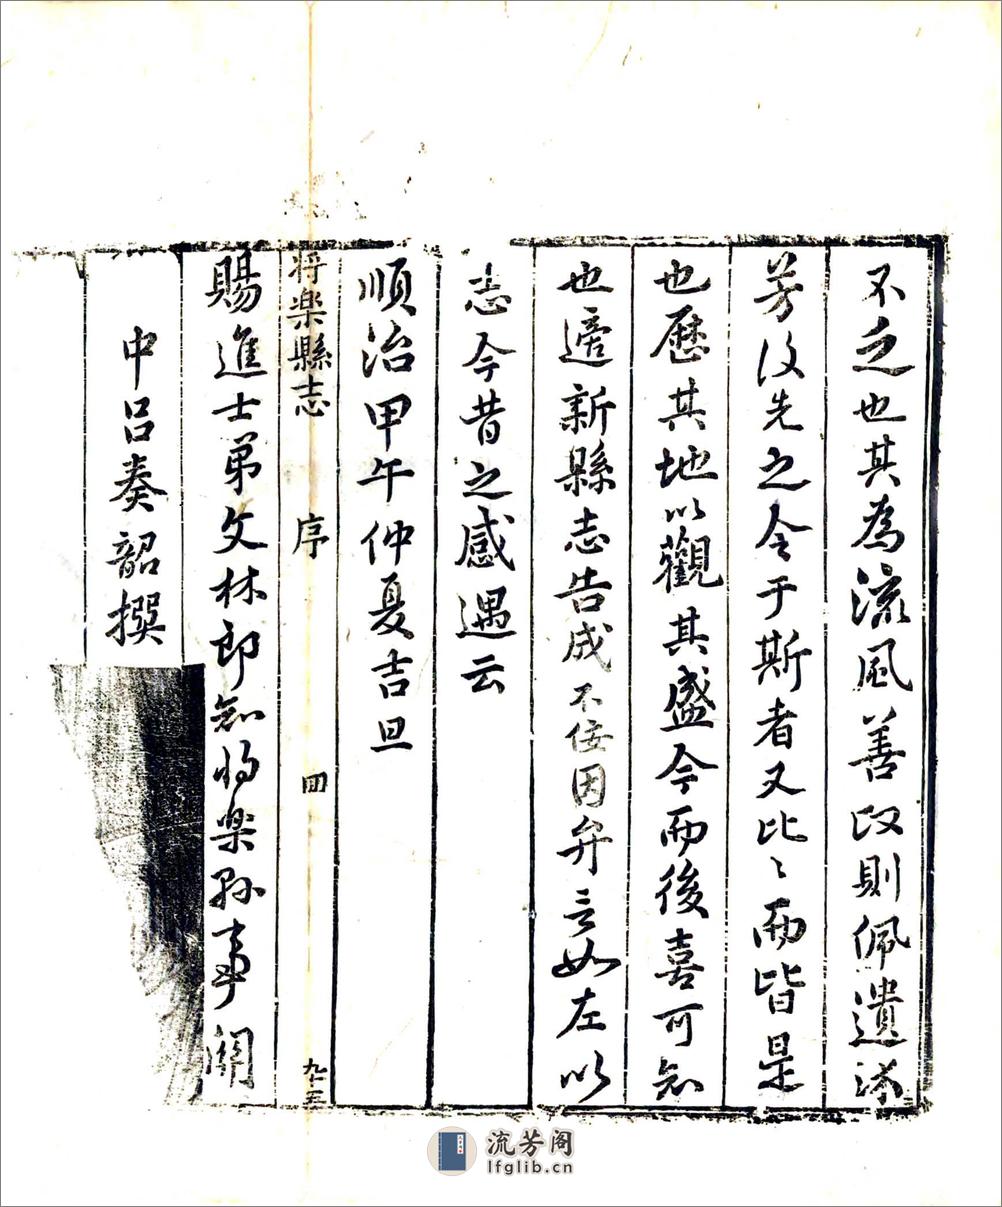 不乏也其為流風善政則佩遺澤
芳後先之令于斯者又比〻而皆是
也歷其地以觀其盛今而後喜可知
也適新縣志告成不佞因弁言如左以
志今昔之感遇云
順治甲午仲夏吉旦
将楽縣志 序 四 九十五
賜進士第文林郎知将楽縣事關
中呂奏韶撰
流芳阁
lfglib.cn